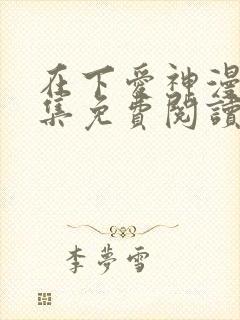 在下愛神漫
集免費閱讀
李夢雪